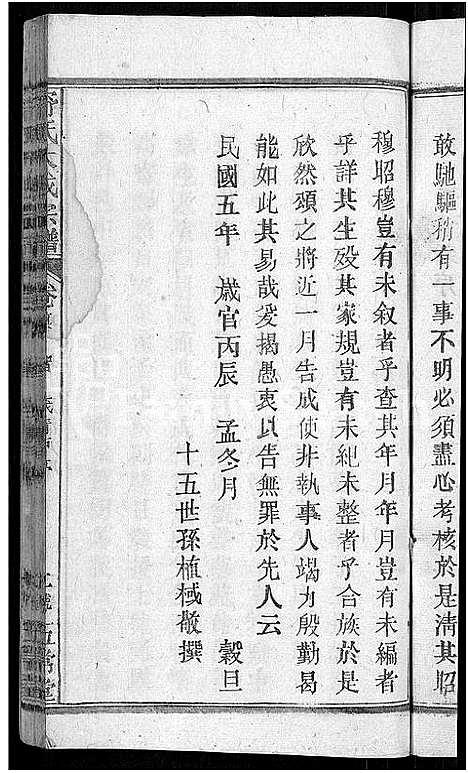 敢馳驅稍有一事不明必須盡心考核於是清其昭
穆昭穆豈有未叙者乎查其年月年月豈有未編者
乎詳其生殁其家規豈有未紀未整者乎合族於是
欣然頌之將近一月告成使非執事人竭力殷勤曷
能如此其易哉爰揭愚衷以告無罪於先人云
民國五年 歲官丙辰 孟冬月 穀旦
十五世孫植棫敬撰
氏大成宗譜 卷